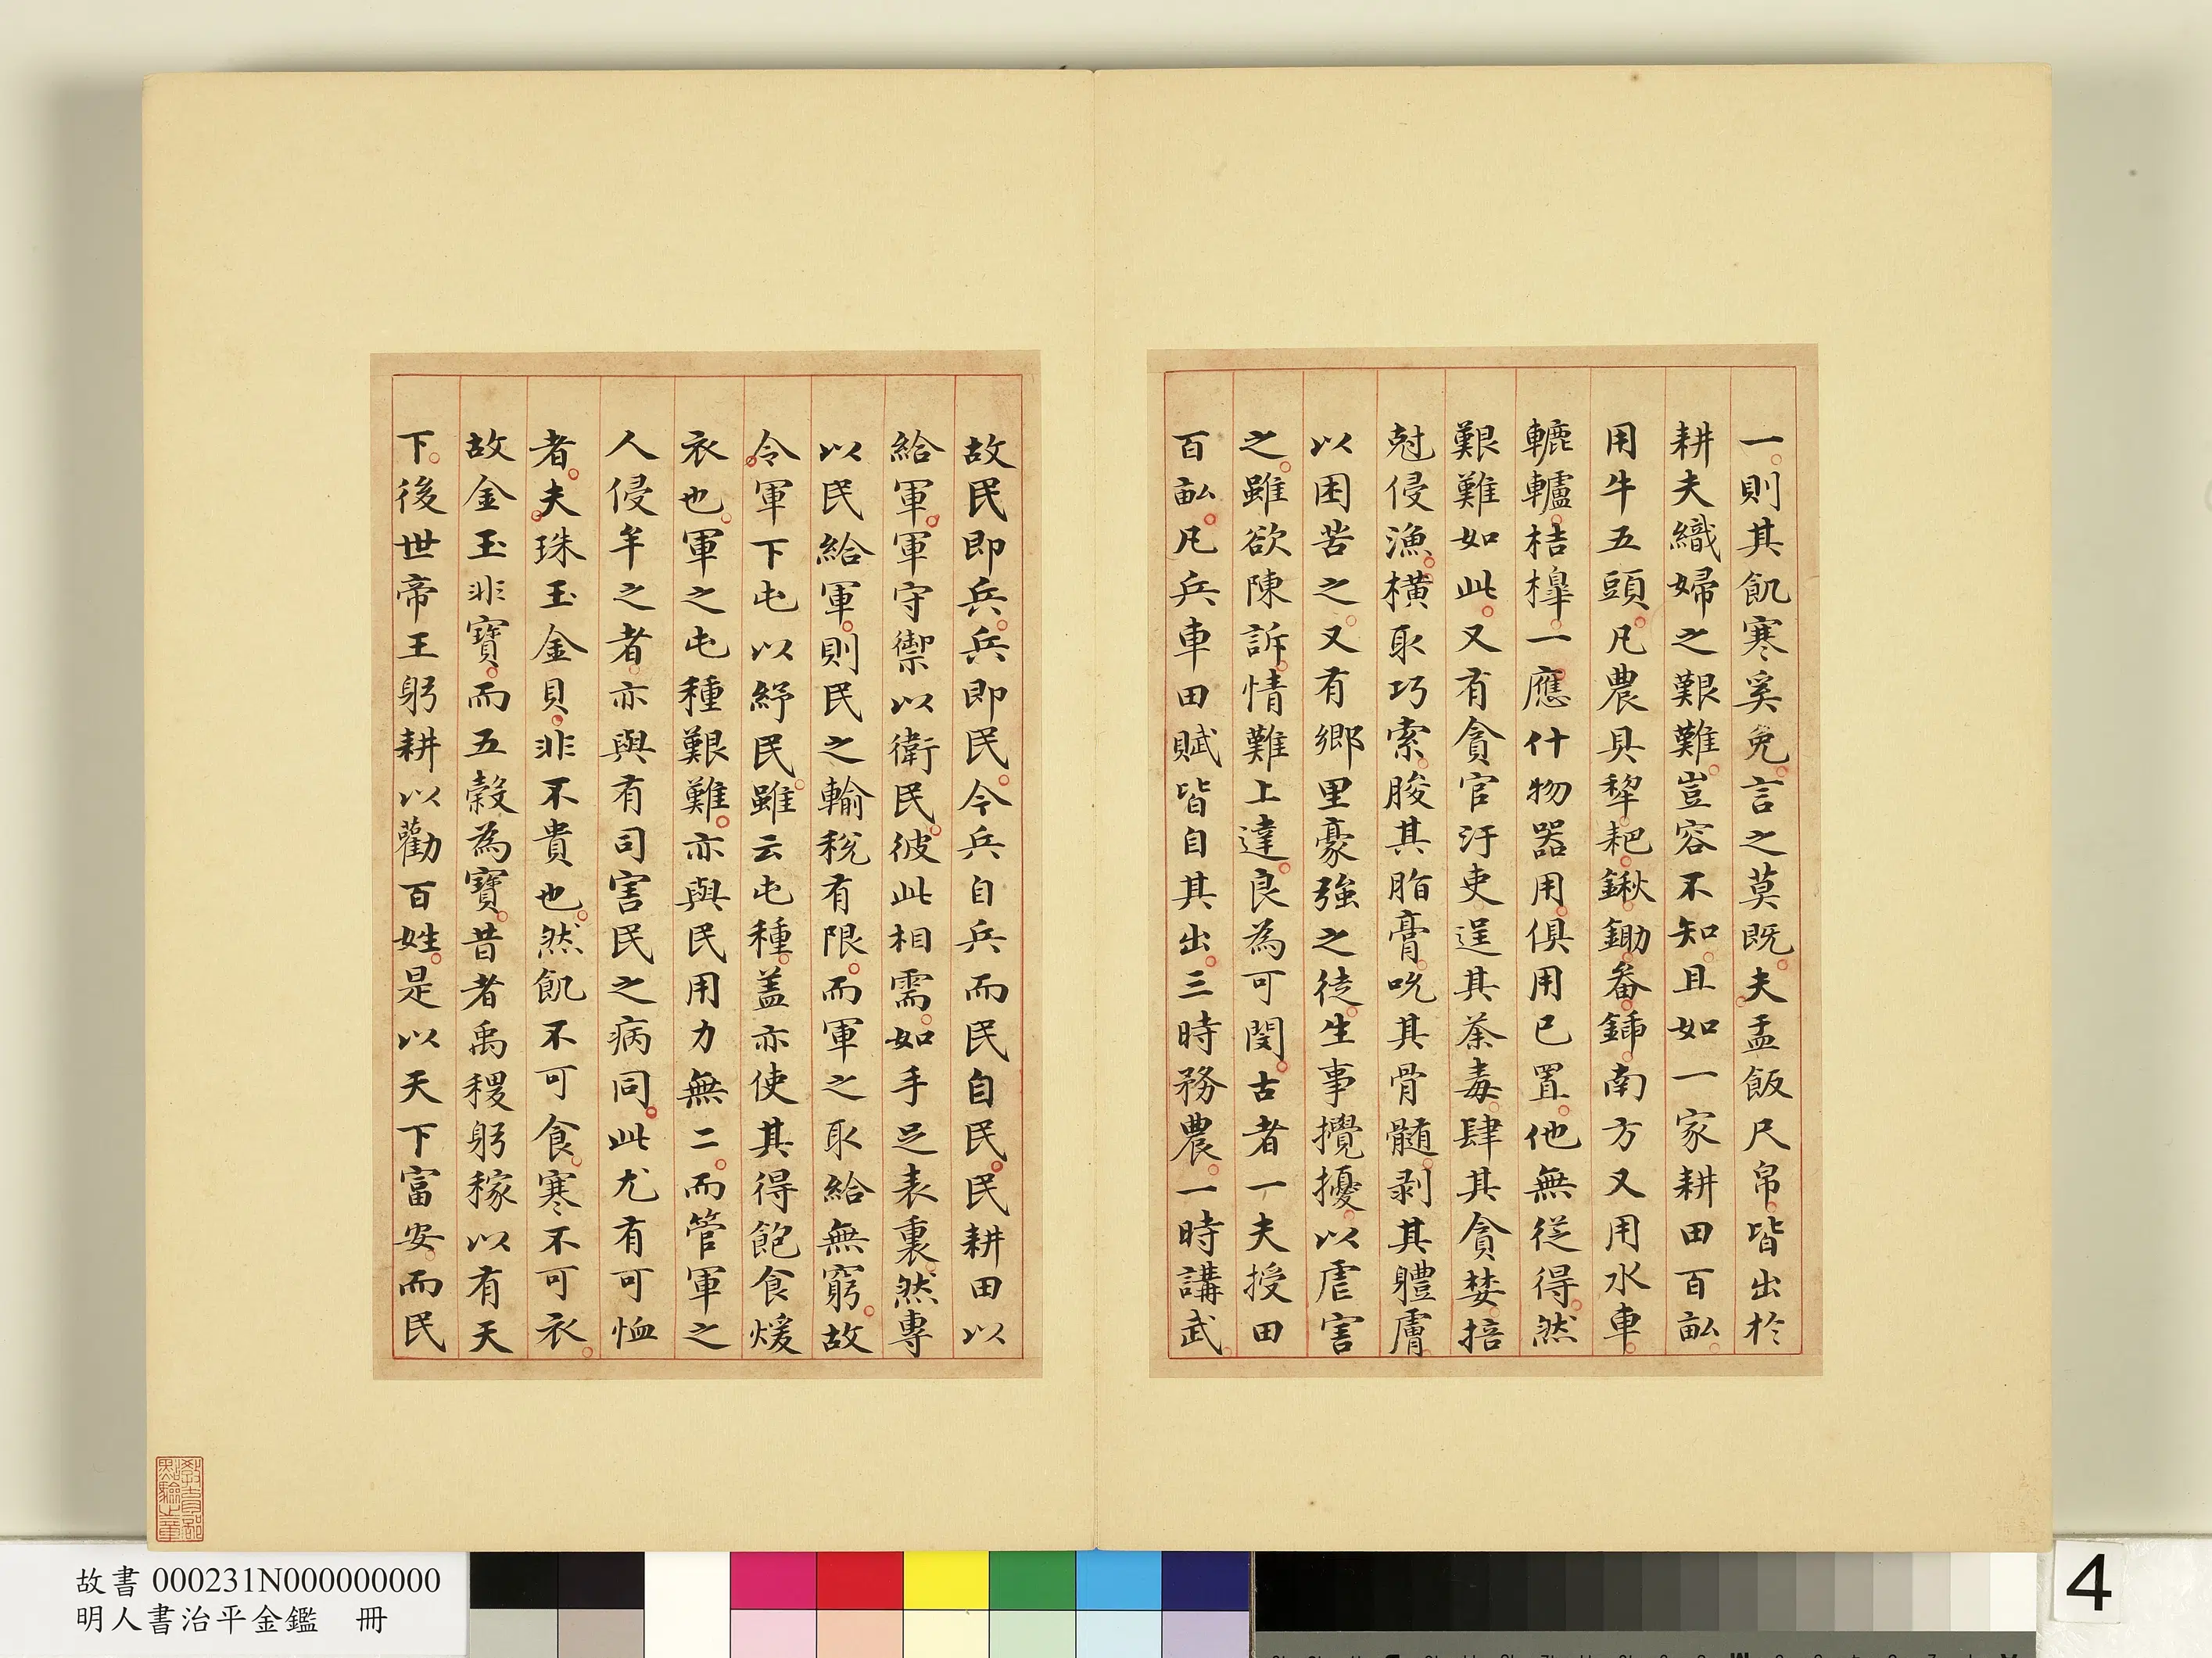 一則其飢寒奚免言之莫既夫盂飯尺帛皆出於
耕夫織婦之艱難豈容不知且如一家耕田百畝
用牛五頭凡農具犂耙鍬鋤畚鍤南方又用水車
轆轤桔槹一應什物器用俱用已置他無從得然
艱難如此又有貪官汙吏逞其荼毒肆其貪婪掊
尅侵漁橫取巧索朘其脂膏吮其骨髓剥其體膚
以困苦之又有鄉里豪強之徒生事攪擾以虐害
之雖欲陳訴情難上達良為可閔古者一夫授田
百畝凡兵車田賦皆自其出三時務農一時講武
故民即兵兵即民今兵自兵而民自民民耕田以
給軍軍守禦以衛民彼此相需如手足表裏然專
以民給軍則民之輸稅有限而軍之取給無窮故
令軍下屯以紓民雖云屯種蓋亦使其得飽食煖
衣也軍之屯種艱難亦與民用力無二而管軍之
人侵牟之者亦與有司害民之病同此尤有可恤
者夫珠玉金貝非不貴也然飢不可食寒不可衣
故金玉非寶而五穀為寶昔者禹稷躬稼以有天
下後世帝王躬耕以勸百姓是以天下富安而民
教育部點驗之章
故書 000231N000000000
明人書治平金鑑 冊
4